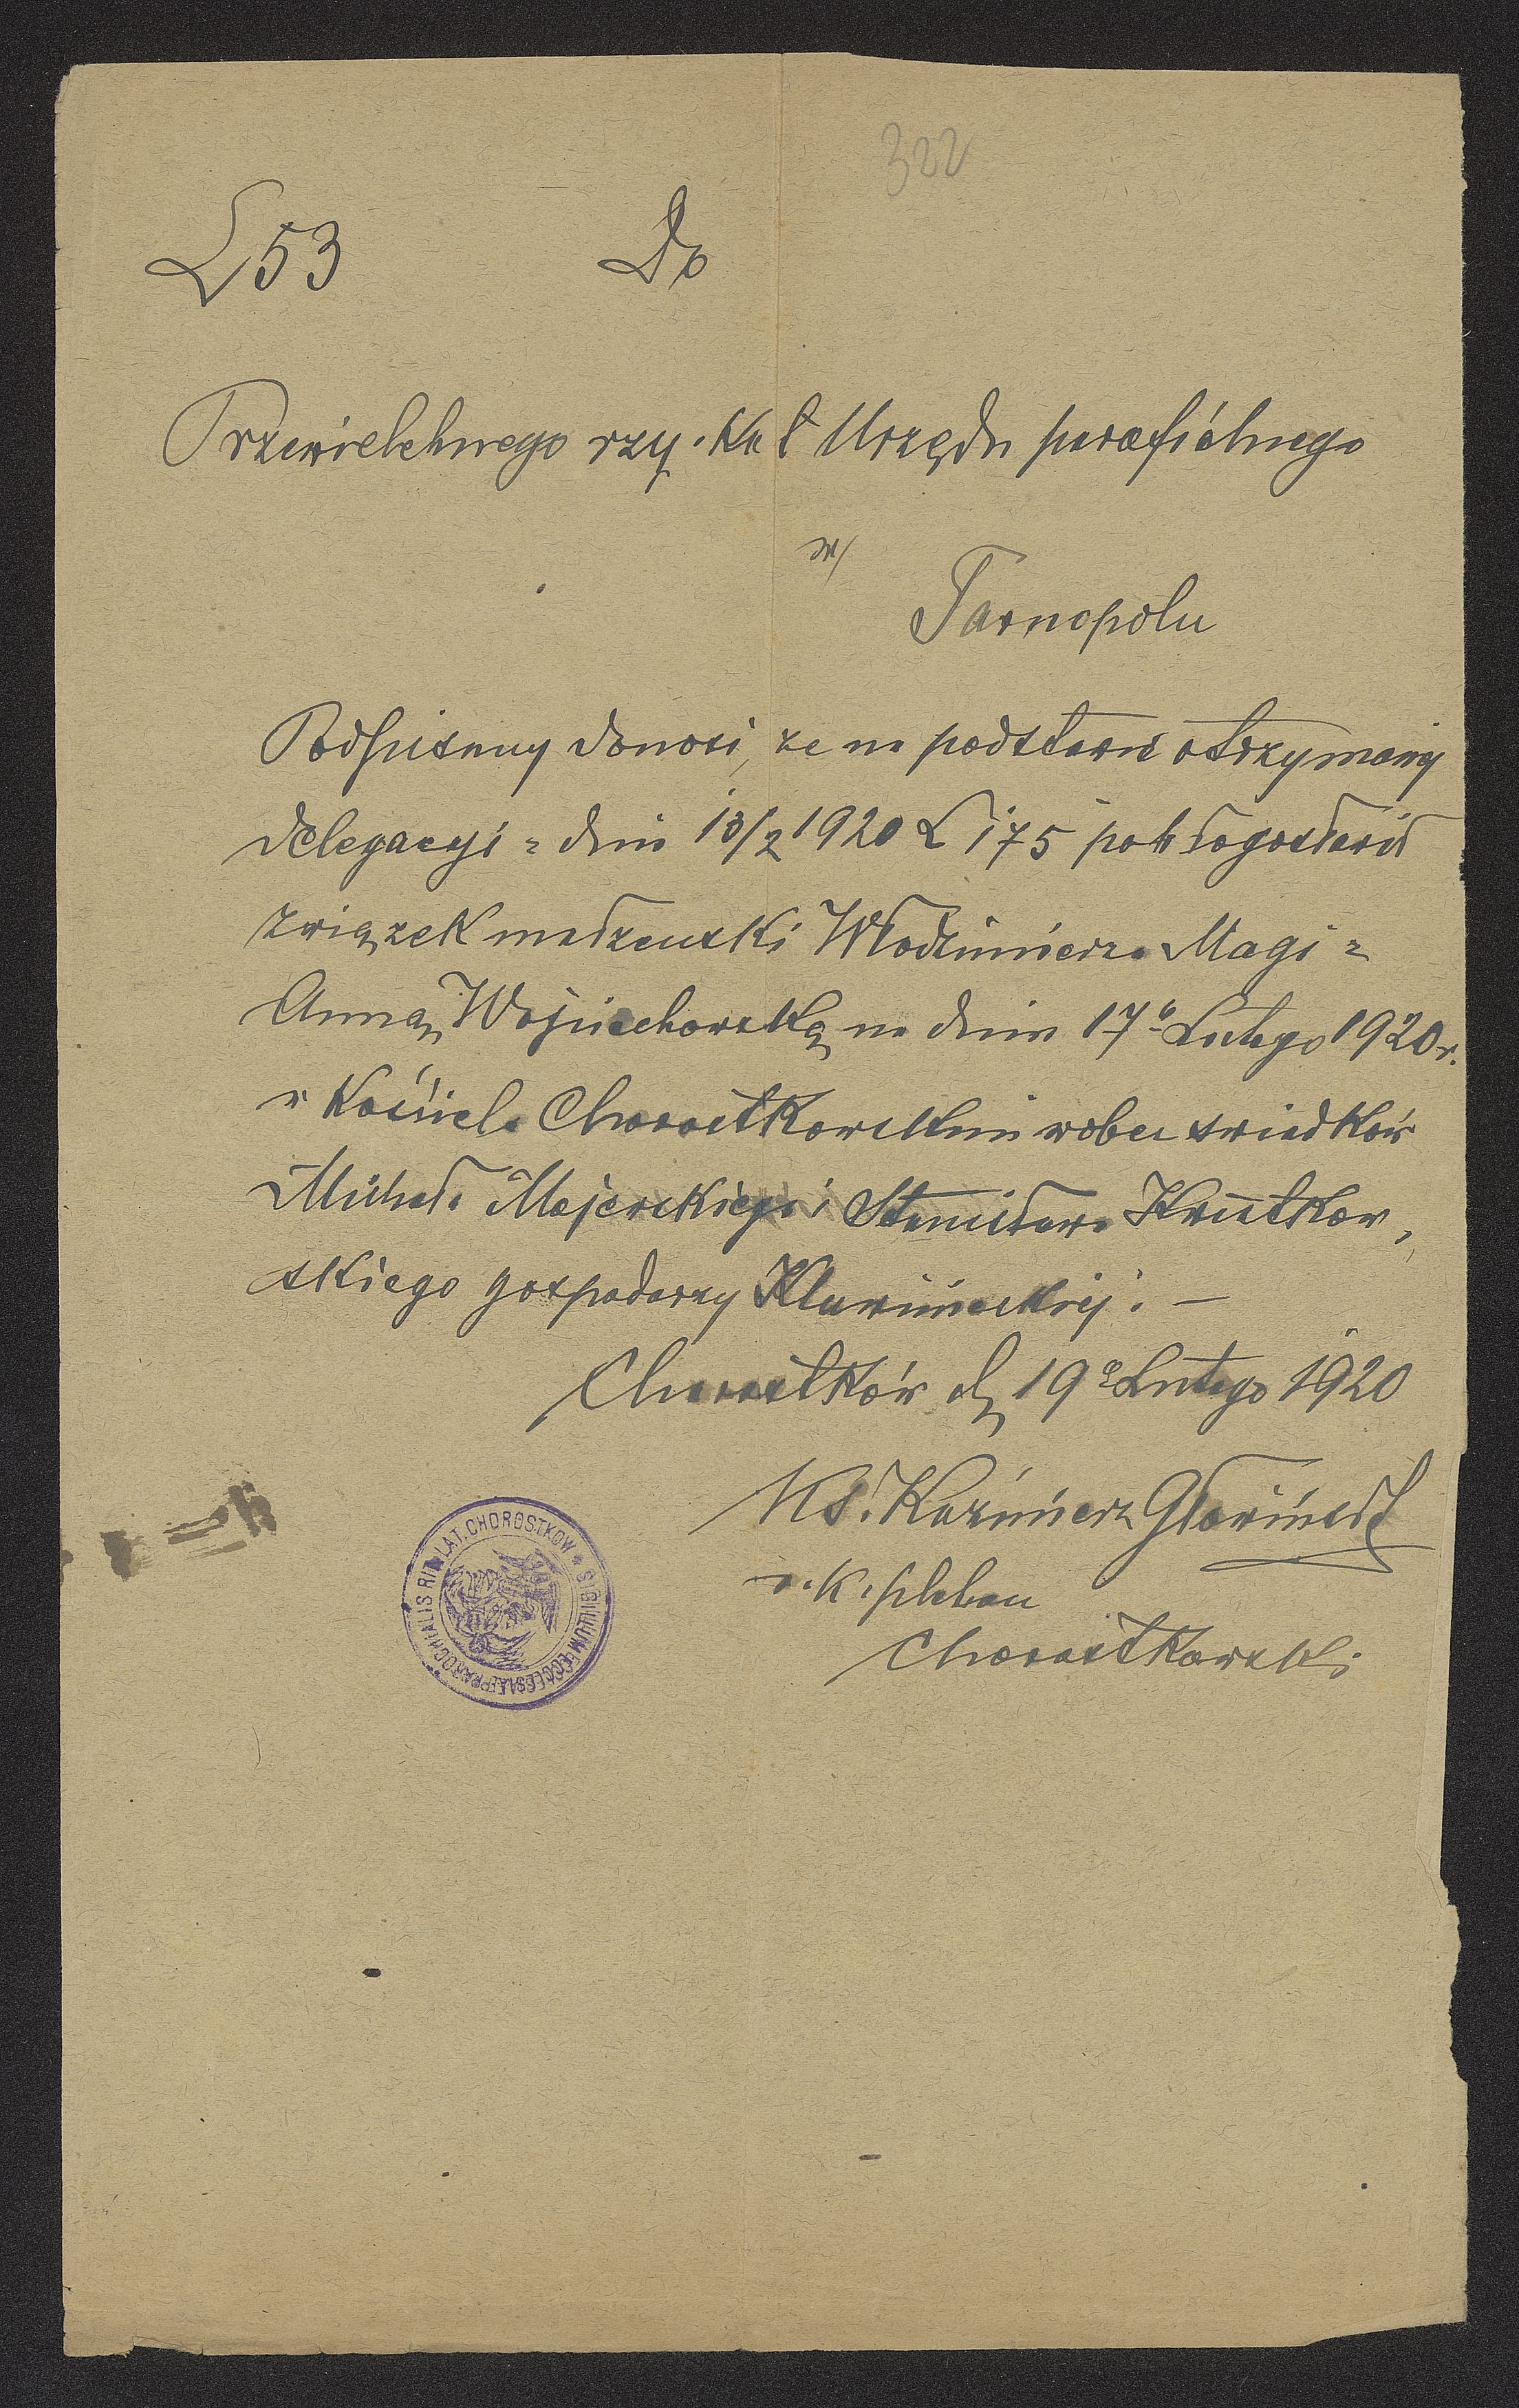 322
L 53 Do
Przewielebnego rzy. kat Urzędu parafiálnego
w/
Tarnopolu
Podpisany donosi, że na podstawie otrzymanej
delegacyi z dnia 13/2 1920 L 175 pobłogosławił
związek małżeński Włodzimierza Magi z
Anną Wojciechowską na dniu 17º Lutego 1920 r.
w Kościele Chorostkowskim wobec świadków
Michała Majerskiego i Stanisława Kwiatkow,
skiego gospodarzy
Chorostków d, 19º Lutego 1920
Ks. Kazimierz
r. k. pleban
Chorostkowski
SIGILLUM ECCLESIAE PAROCHIALIS RIT. LAT. CHOROSTKOW *